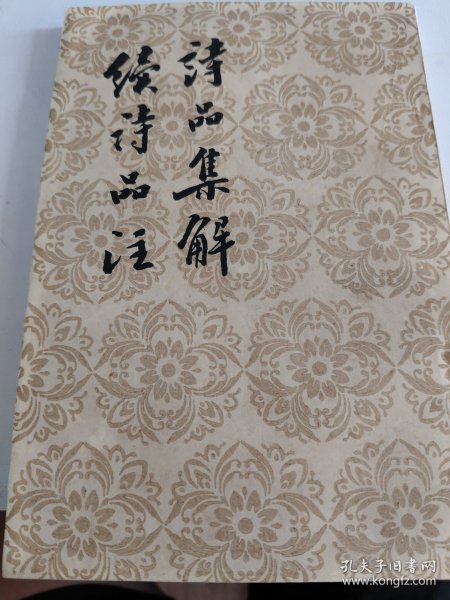 詩品集解
續詩品注
孔夫子旧书网
www.kongfz.com